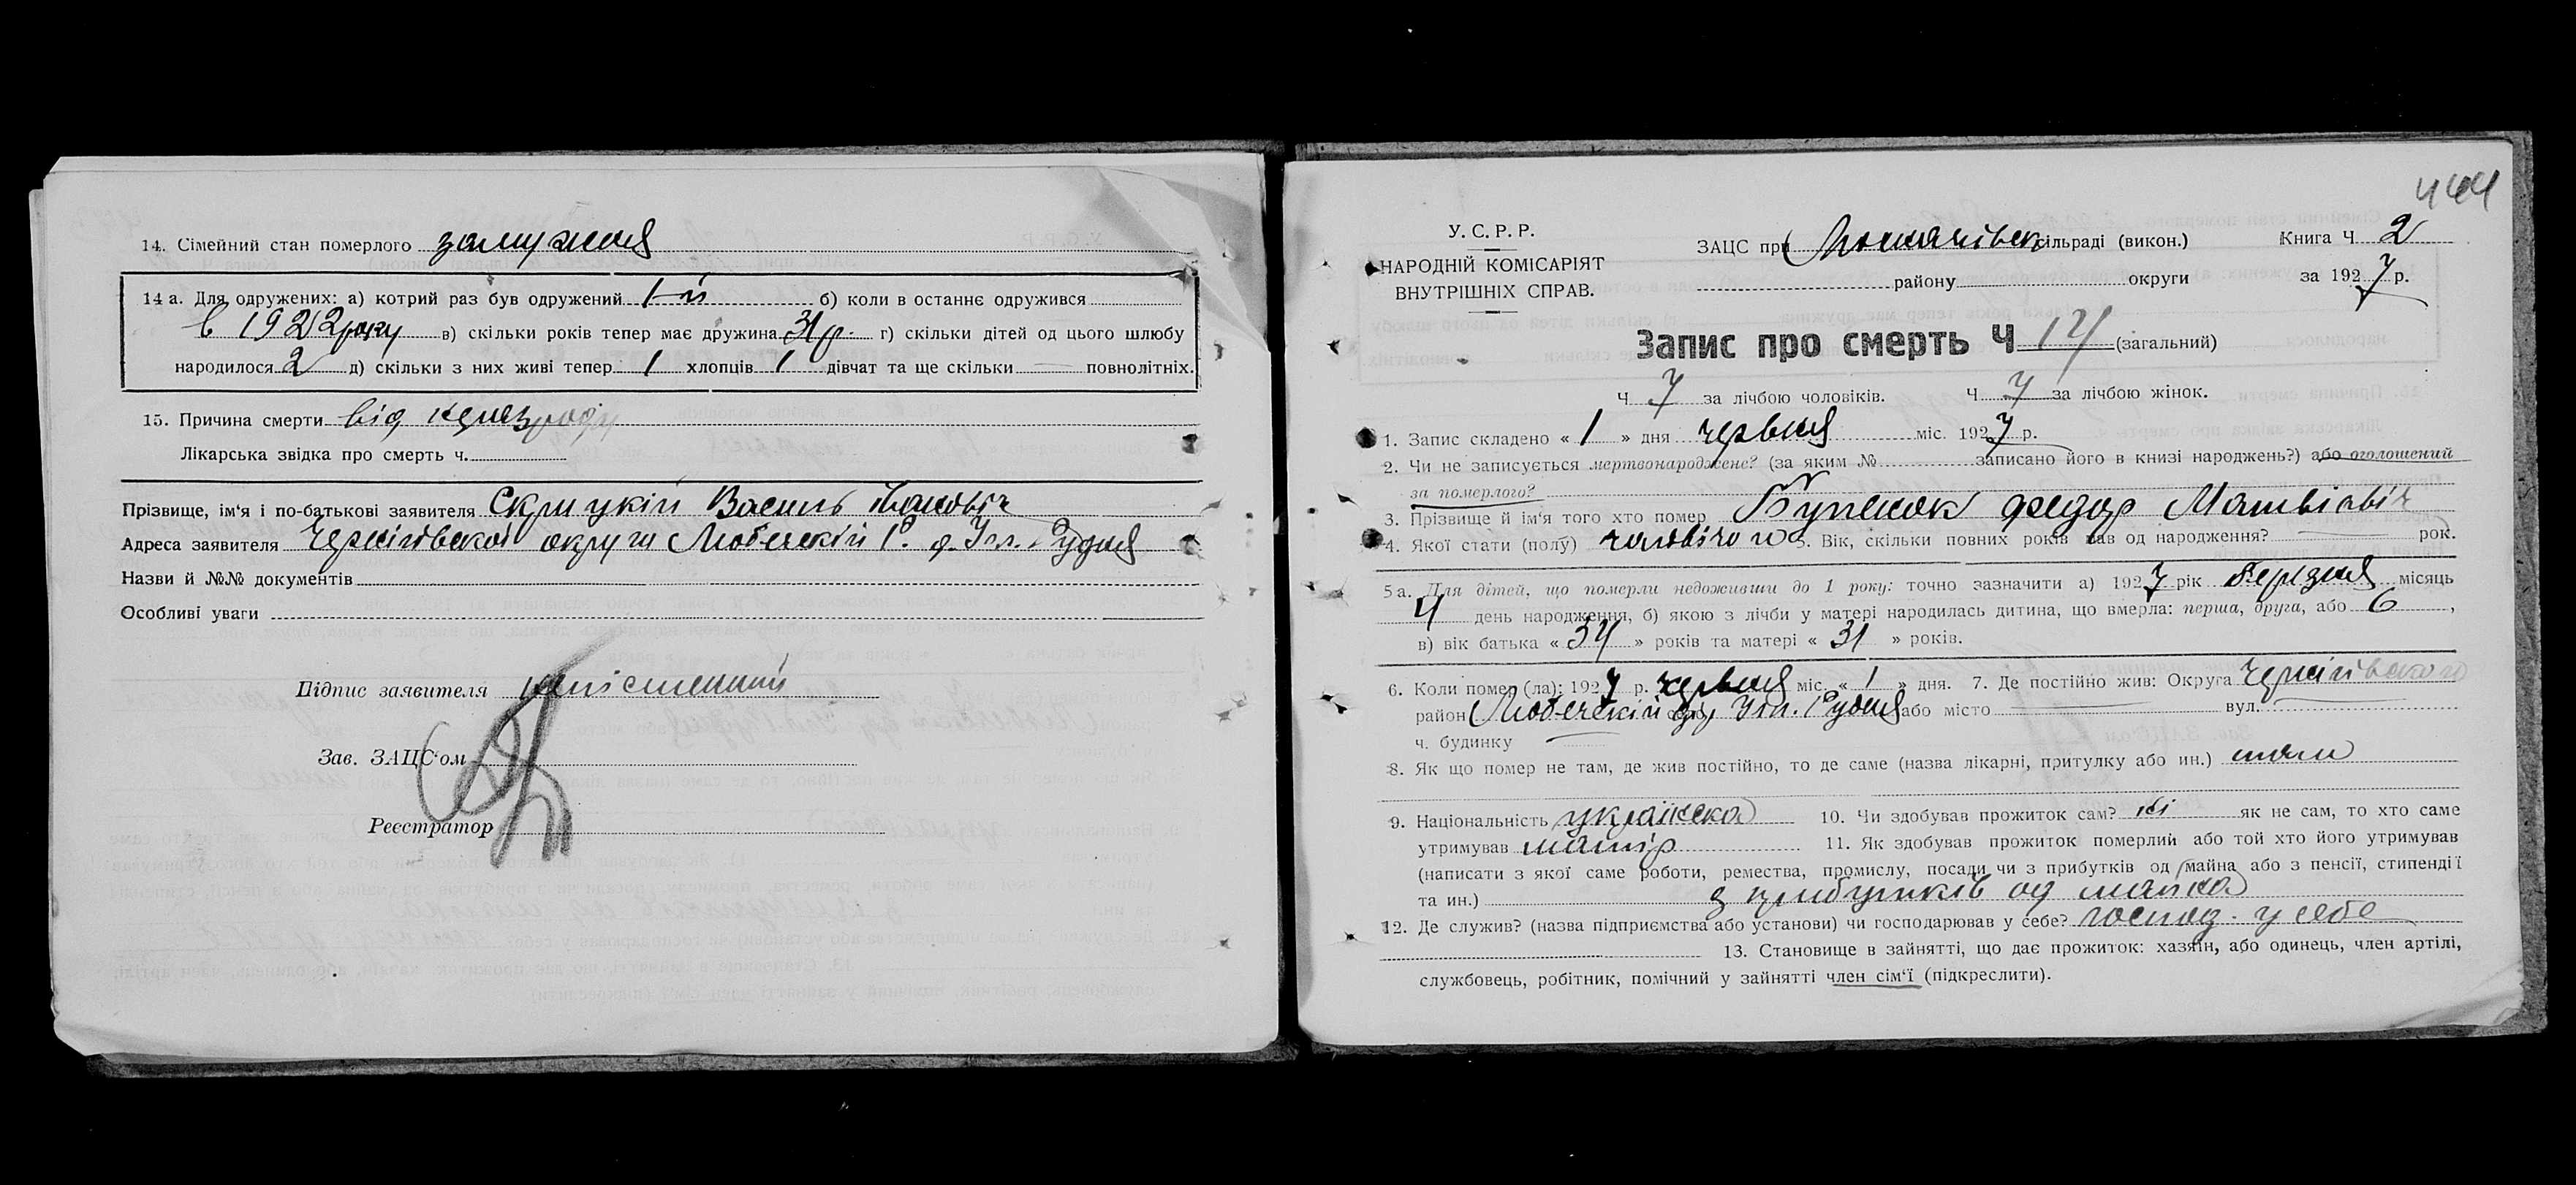 14. Сімейний стан померлого замужня
14 а. Для одружених: а) котрий раз був одружений 1-й б) коли в останнє одружився
в 1922 року в) скільки років тепер має дружина 31 р. г) скільки дітей од цього шлюбу
народилося 2 д) скільки з них живі тепер 1 хлопців 1 дівчат та ще скільки — повнолітніх.
15. Причина смерти від
Лікарська звідка про смерть ч.
Прізвище, ім'я і по-батькові заявителя Скрицкій Василь Іванович
Адреса заявителя Чернігівской округи Любечскій Р. д. Ул. Рудня
Назви й №№ документів
Особливі уваги
Підпис заявителя
Зав. ЗАЦС'ом
Реєстратор
444
У. С. Р. Р.
НАРОДНІЙ КОМІСАРІЯТ
ВНУТРІШНІХ СПРАВ.
ЗАЦС при сільраді (викон.) Книга Ч 2
району округи за 1927 р.
Запис про смерть Ч 14 (загальний)
Ч 7 за лічбою чоловіків. Ч 7 за лічбою жінок.
1. Запис складено « 1 » дня червня міс. 1927 р.
2. Чи не записується мертвонароджене? (за яким № записано його в книзі народжень?) або оголошений
за померлого?
3. Прізвище й ім'я того хто помер Федор Матвієвіч
4. Якої стати (полу) чоловічого 5. Вік, скільки повних років мав од народження? — рок.
5 а. Для дітей, що померли недоживши до 1 року: точно зазначити а) 1927 рік березня місяць
4 день народження, б) якою з лічби у матері народилась дитина, що вмерла: перша, друга, або 6 ,
в) вік батька « 34 » років та матері « 31 » років.
6. Коли помер (ла): 1927 р. червня міс. « 1 » дня. 7. Де постійно жив: Округа Чернігівского
район Любечскій Ул. Рудня або місто — вул.
ч. будинку —
8. Як що помер не там, де жив постійно, то де саме (назва лікарні, притулку або ин.) там
9. Національність українска 10. Чи здобував прожиток сам? ні як не сам, то хто саме
утримував матір 11. Як здобував прожиток померлий або той хто його утримував
(написати з якої саме роботи, ремества, промислу, посади чи з прибутків од майна або з пенсії, стипендії
та ин.) з прибутків од майна
12. Де служив? (назва підприємства або установи) чи господарював у себе? господ. у себе
13. Становище в зайнятті, що дає прожиток: хазяїн, або одинець, член артілі,
службовець, робітник, помічний у зайнятті член сім'ї (підкреслити).